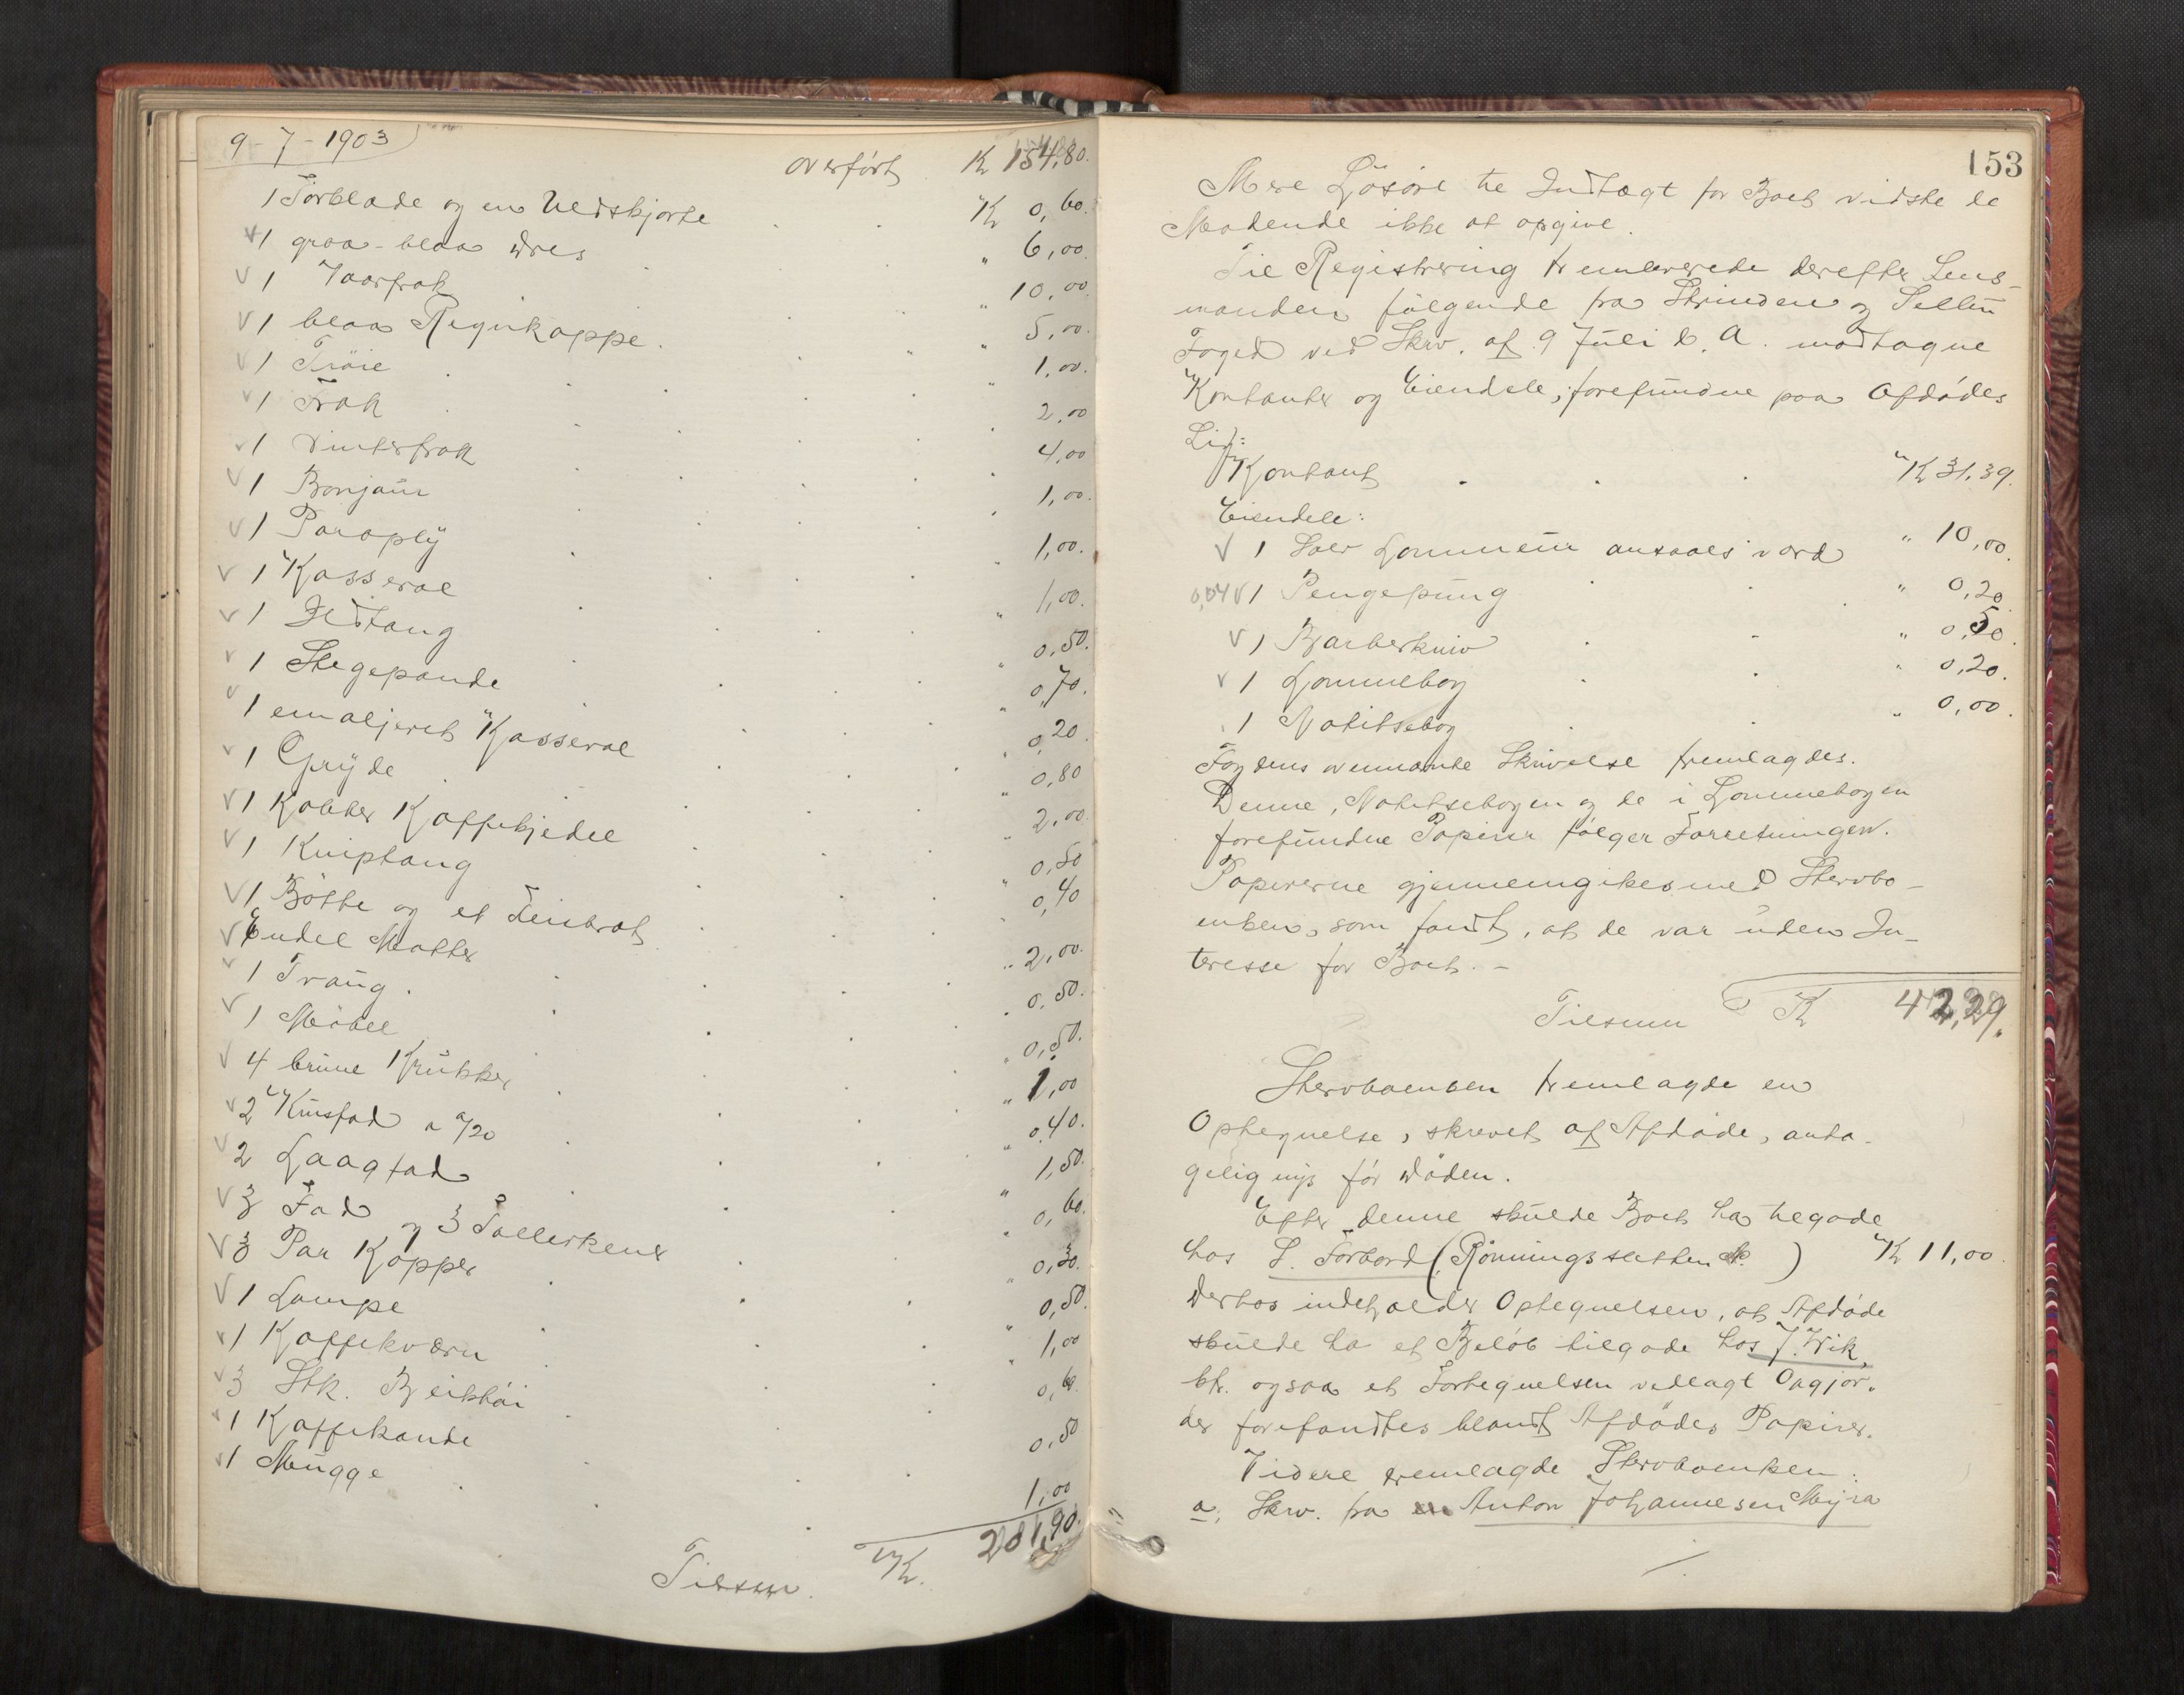 9-7-1903
overført K 154,80.
1 Tørblade og en Uldskjorte K 0,60.
1 graa-blaa Dres " 6,00.
1 Vaarfrak " 10,00.
1 blaa Regnkappe. " 5,00.
1 Trøie " 1,00.
1 Frak 2,00
1 Vinterfrak 4,00
1 Bonjour 1,00.
1 Paraply 1,00.
1 Kasserol 1,00.
1 Ildtang 0,50.
1 Stegepande 0,70.
1 emaljeret Kasserol 0,20
1 Gryde 0,80
1 Kobber Kaffekjedel 2,00
1 Kniptang 0,50
1 Bøtte og et 0,40
Endel Matter 2,00.
1 Traug. 0,50.
1 Møbel 0,50.
4 brune Krukker " 1,00
2 a /20 0,40.
2 Laagfad 1,50.
3 Fad og 3 Tallerkener 0,60.
3 Par Kopper 0,30.
1 Lampe 0,50.
1 Kaffekværn 1,00
3 Stk. 0,60.
1 Kaffekande 0,50
1 Mugge 1,00
Tilsam. K. 201,90.
153
Mere Løsøre til Indtægt for Boet vidste de
Mødende ikke at opgive.
Til Registrering fremleverede derefter Lens-
manden følgende fra Strinden og Selbu
Foged ved Skrv. af 9 Juli d. A. modtagne
Kontanter og Eiendele, forefundne paa Afdødes
Lig:
Kontant K 31,39.
Eiendele:
1 Sølv Lommeur ansaaes værd " 10,00.
0,04 1 Pengepung " 0,20
1 Barberkniv " 0,50.
1 Lommebog " 0,20.
1 Notitsebog " 0,00.
Fogdens ovennævnte Skrivelse fremlagdes.
Denne, Notitsebogen og de i Lommebogen
forefundne Papirer følger Forretningen.
Papirerne gjennemgikes med Stervbo-
enken, som fandt, at de var uden In-
teresse for Boet. -
Tilsam K 42,29.
Stervboenken fremlagde en
Optegnelse, skrevet af Afdøde, anta-
gelig nys før Døden.
Efter denne skulde Boet ha tilgode
hos L. Forbord (Rønningssletten ) K 11,00.
Derhos indeholder Optegnelsen, at Afdøde
skulde ha et Beløb tilgode hos J. Wik,
kfr. ogsaa et Fortegnelsen vedlagt Opgjør.
der forefandtes blandt Afdødes Papirer.
Videre fremlagde Stervboenken:
a, Skrv. fra Anton Johannesen Myra